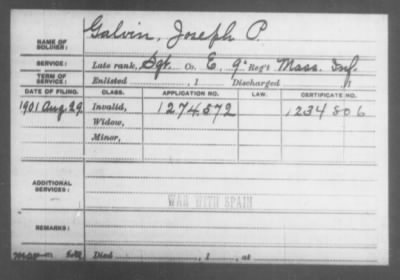 NAME OF SOLDIER: Galvin, Joseph P
SERVICE: Late rank, Sgt. Co. E, 9" Reg't Mass. Inf.
TERM OF SERVICE: Enlisted , 1 Discharged , 1
DATE OF FILING. CLASS. APPLICATION NO. LAW. CERTIFICATE NO.
1901 Aug. 29 Invalid, 1274,572 1234806
Widow,
Minor,
ADDITIONAL SERVICES:
WAR WITH SPAIN
REMARKS:
Died , 1 , at